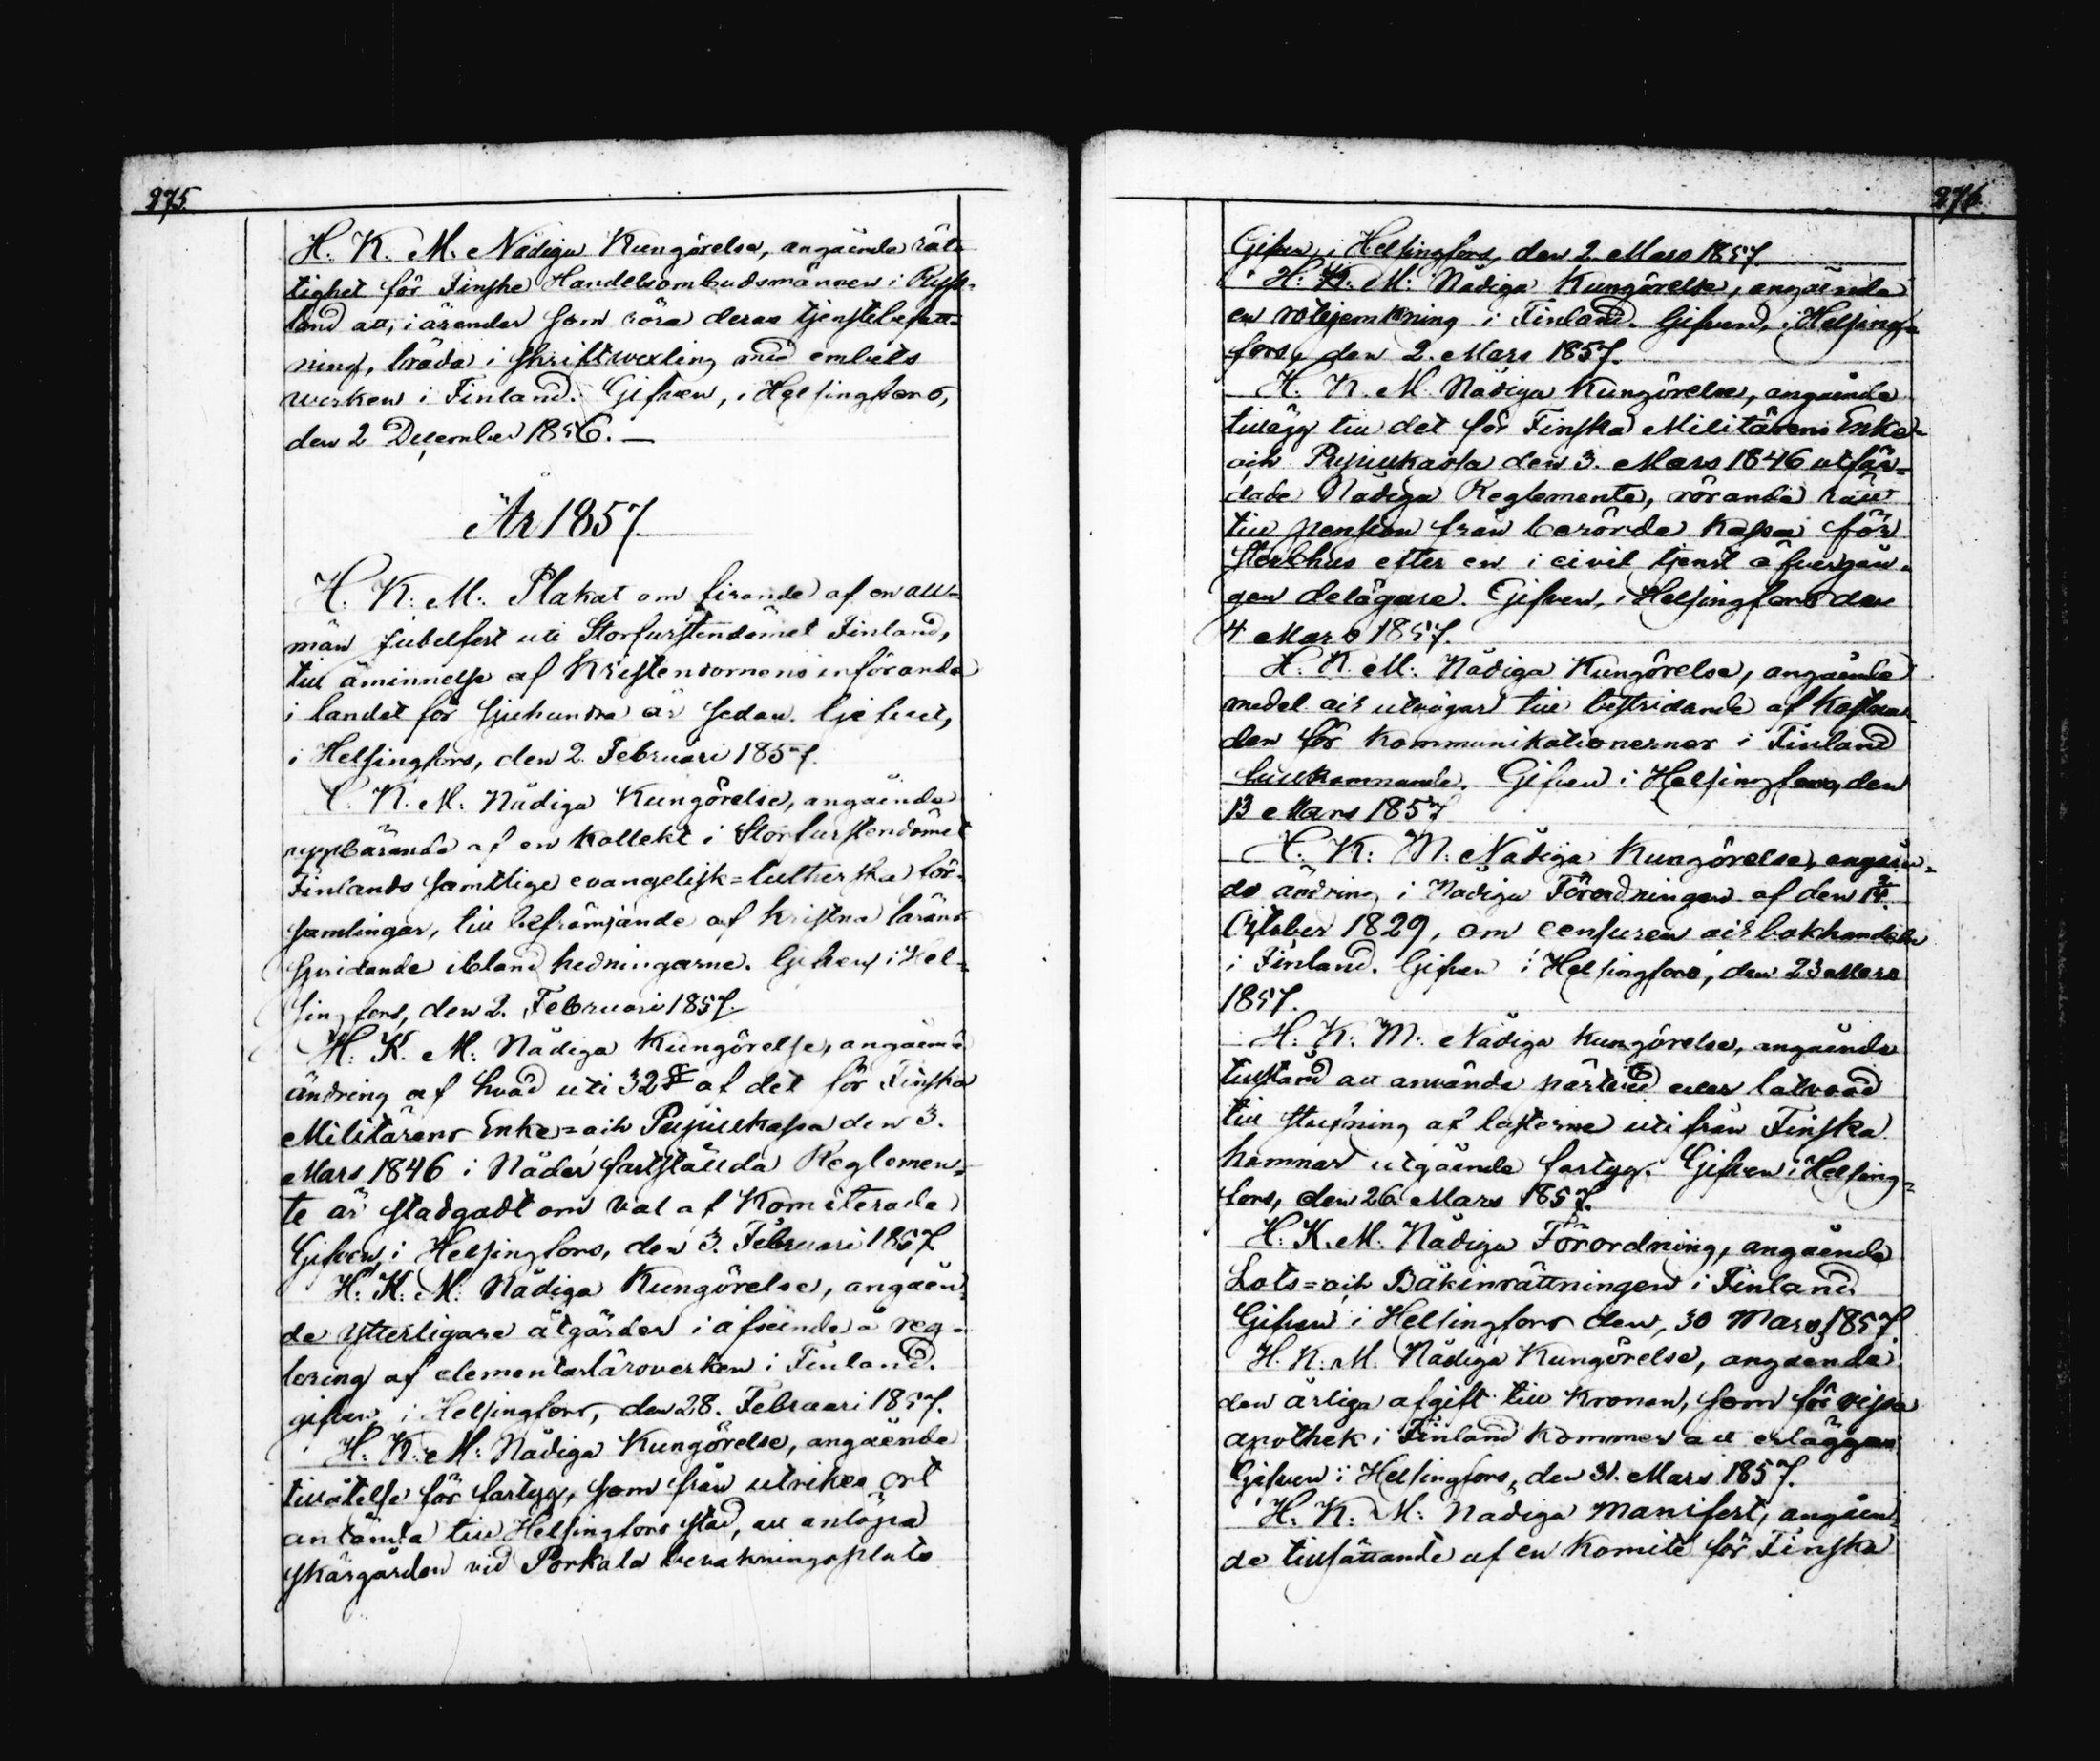 275.
H. K. M. Nådiga Kungörelse, angående rät-
tighet för Finske Handelsombudsmännen i Ryss-
land att, i ärender som röra deras tjenstebefatt-
ning, träda i skriftwexling med embets
werken i Finland. Gifven, i Helsingfors,
den 2 December 1856. —
År 1857.
H. K. M. Plakat om firande af en all-
män Jubelfest uti Storfurstendömet Finland,
till åminnelse af Kristendomens införande
i landet för sjuhundra år sedan. Gifvet,
i Helsingfors, den 2. Februari 1857.
H. K. M. Nådiga Kungörelse, angående
uppbärande af en kollekt i Storfurstendömet
Finlands samtlige evangelisk=lutherska för-
samlingar, till befrämjande af kristna lärans
spridande ibland hedningarne. Gifven, i Hel-
singfors, den 2. Februari 1857.
H. K. M. Nådiga Kungörelse, angående
ändring af hvad uti 32 § af det för Finska
Militärens Enke= och Pupillkassa den 3.
Mars 1846 i Nåder fastställda Reglemen-
te är stadgadt om val af Komiterade
Gifven, i Helsingfors, den 3. Februari 1857.
H. K. M. Nådiga Kungörelse, angåen-
de ytterligare åtgärder i afseende å reg-
lering af elementarläroverken i Finland.
gifven, i Helsingfors, den 28. Februari 1857.
H. K. M. Nådiga Kungörelse, angående
tillåtelse för fartyg, som från utrikes ort
anlända till Helsingfors stad, att anlöpa
skärgården vid Porkala bevakningsplats
276.
Gifven, i Helsingfors, den 2. Mars 1857.
H. K. M. Nådiga Kungörelse, angående
en rotejemkning i Finland. Gifven, i Helsing-
fors, den 2. Mars 1857.
H. K. M. Nådiga Kungörelse, angående
tillägg till det för Finska Militärens Enke-
och Pupillkassa den 3. Mars 1846 utfär-
dade Nådiga Reglemente, rörande rätt
till pension från berörde kassa för
sterbhus efter en i civil tjenst öfvergån-
gen delägare. Gifven, i Helsingfors den
4 Mars 1857.
H. K. M. Nådiga Kungörelse, angående
medel och utvägar till bestridande af kostna-
den för kommunikationernes i Finland
fullkomnande. Gifven i Helsingfors, den
13 Mars 1857
H. K. M. Nådiga Kungörelse, angåen-
de ändring i Nådiga Förordningen af den 2/14.
October 1829, om censuren och bokhandeln
i Finland. Gifven i Helsingfors, den 23 Mars
1857.
H. K. M. Nådiga kungörelse, angående
tillstånd att använda pärtved eller latwed
till stufning af lasterne uti från Finska
hamnar utgående fartyg. Gifven i Helsing-
fors, den 26. Mars 1857.
H. K. M. Nådiga Förordning, angående
Lots= och Båkinrättningen i Finland.
Gifven i Helsingfors den, 30 Mars 1857.
H. K. M. Nådiga Kungörelse, angående
den årliga afgift till Kronan, som för vissa
apothek i Finland kommer att erläggas
Gifven i Helsingfors, den 31. Mars 1857.
H. K. M. Nådiga Manifest, angåen-
de tillsättande af en Komité för Finska